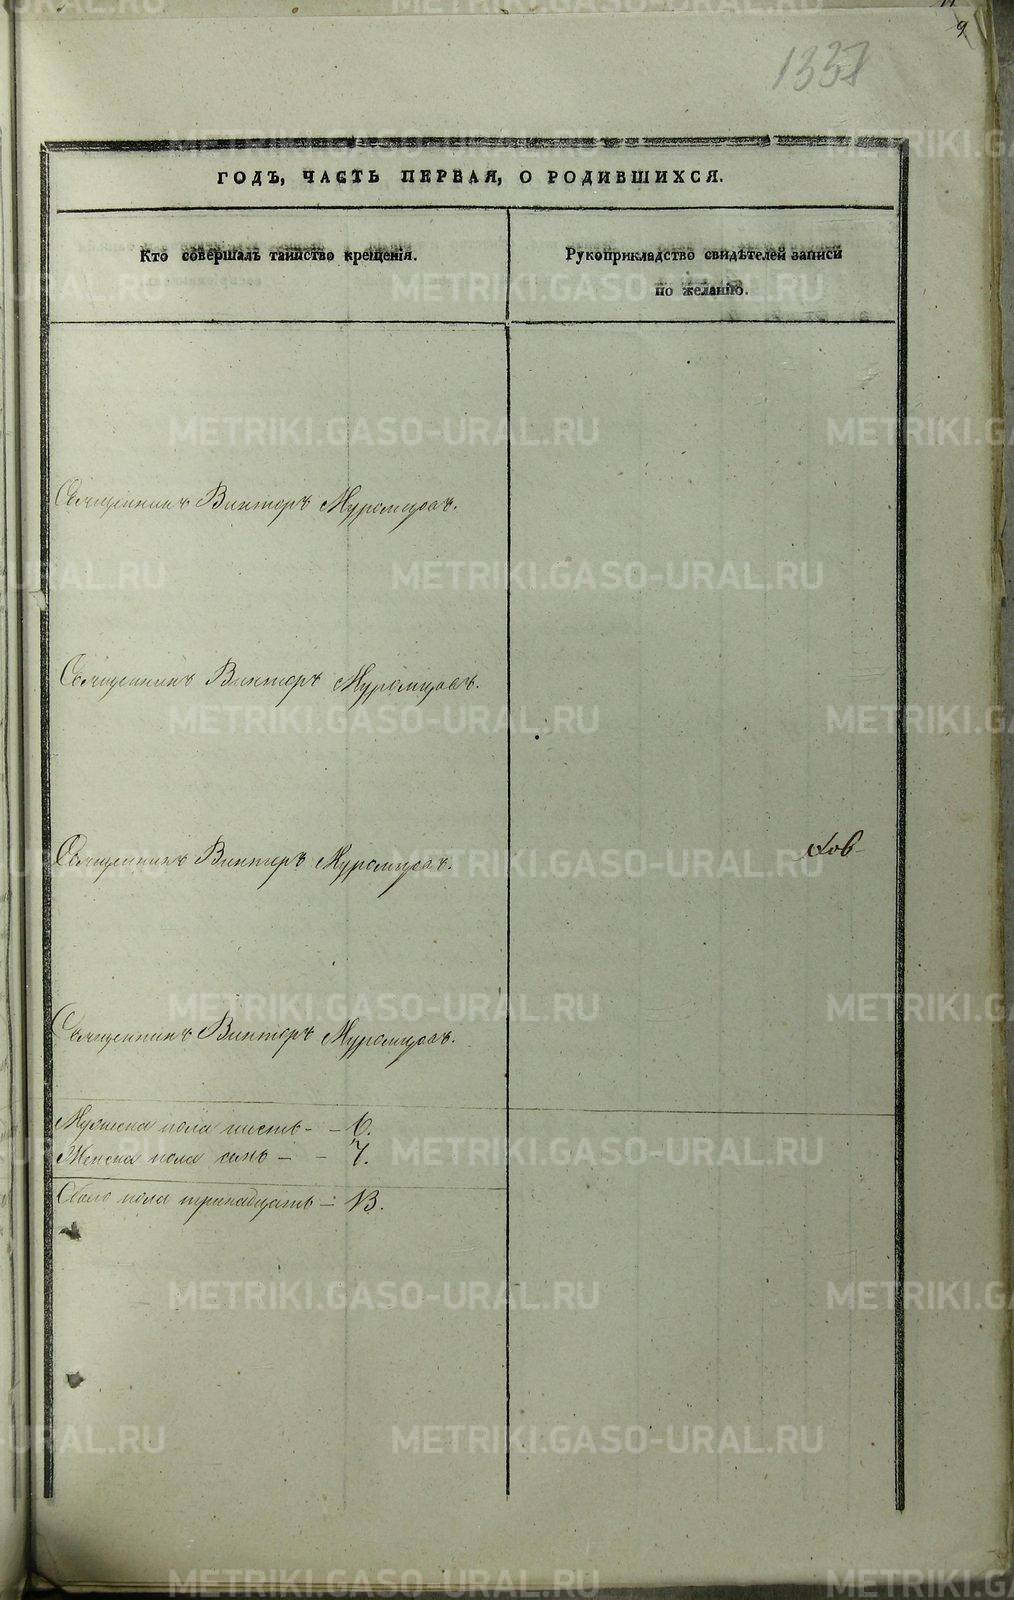 9.
1337
ГОДЪ, ЧАСТЬ ПЕРВАЯ, О РОДИВШИХСЯ.
Кто совершалъ таинство крещенія.
Рукоприкладство свидѣтелей записи
по желанію.
Священникъ Викторъ Муромцовъ.
Священникъ Викторъ Муромцовъ.
Священникъ Викторъ Муромцовъ.
ховъ
Священникъ Викторъ Муромцовъ.
Мужеска пола шесть - - 6.
Женска пола семь - - 7.
Обоего пола тринадцать - 13.
METRIKI.GASO-URAL.RU